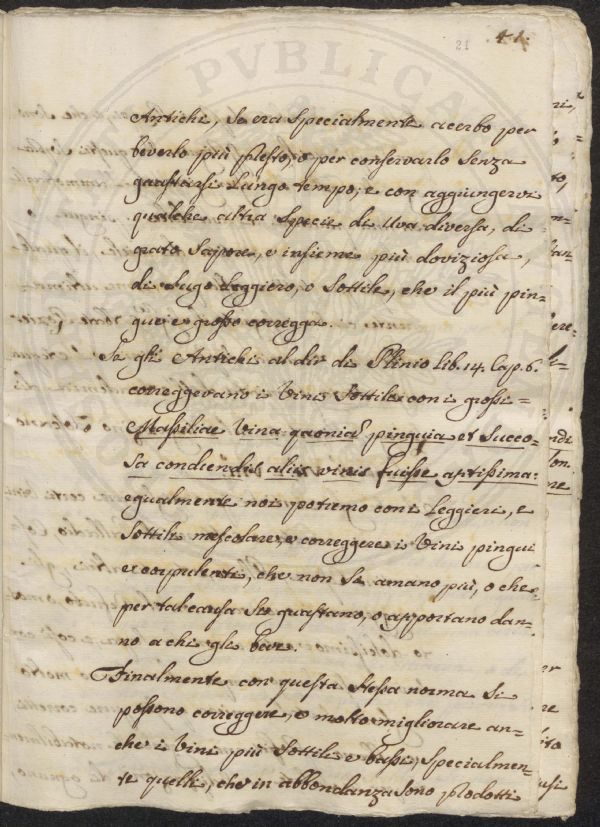 21 41.
Antichi, se era specialmente acerbo per
beverlo più presto, o per conservarlo senza
guastarsi lungo tempo; e con aggiungervi
qualche altra specie di Uva diversa, di
grato sapore, e insieme più doviziosa,
di sugo leggiero, o sottile, che il più pin-
gue e grosso corregga.
Se gli Antichi al dir di Plinio Lib. 14. Cap. 6.
correggevano i Vini sottili con i grossi
Massiliae vina pinguia et succo-
sa condiendis aliis vinis fuisse aptissima:
egualmente noi potremo con i leggieri, e
sottili mescolare, e correggere i Vini pingui
e corpulenti, che non si amano più, o che
per tal causa si guastano, o apportano dan-
no a chi gli beve.
Finalmente con questa stessa norma si
possono correggere, e molto migliorare an-
che i Vini più sottili e bassi, specialmen-
te quelli, che in abbondanza sono prodotti